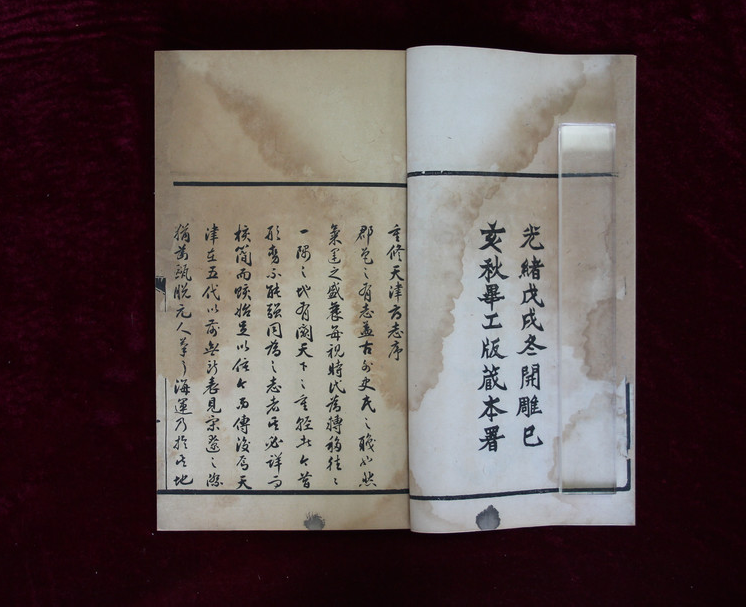 光緒戊戌冬開雕巳
亥秋畢工版藏本署
重修天津府志序
郡邑之有志蓋古外史氏之職也然
氣運之盛衰每視時代為轉移往之
一隅之地有關天下之重輕此今昔
形勢不能強同為之志者其必詳而
核簡而賅始足以信今而傳後焉天
津在五代以前無所表見宋遼之際
猶甌脫元人海運乃於其地